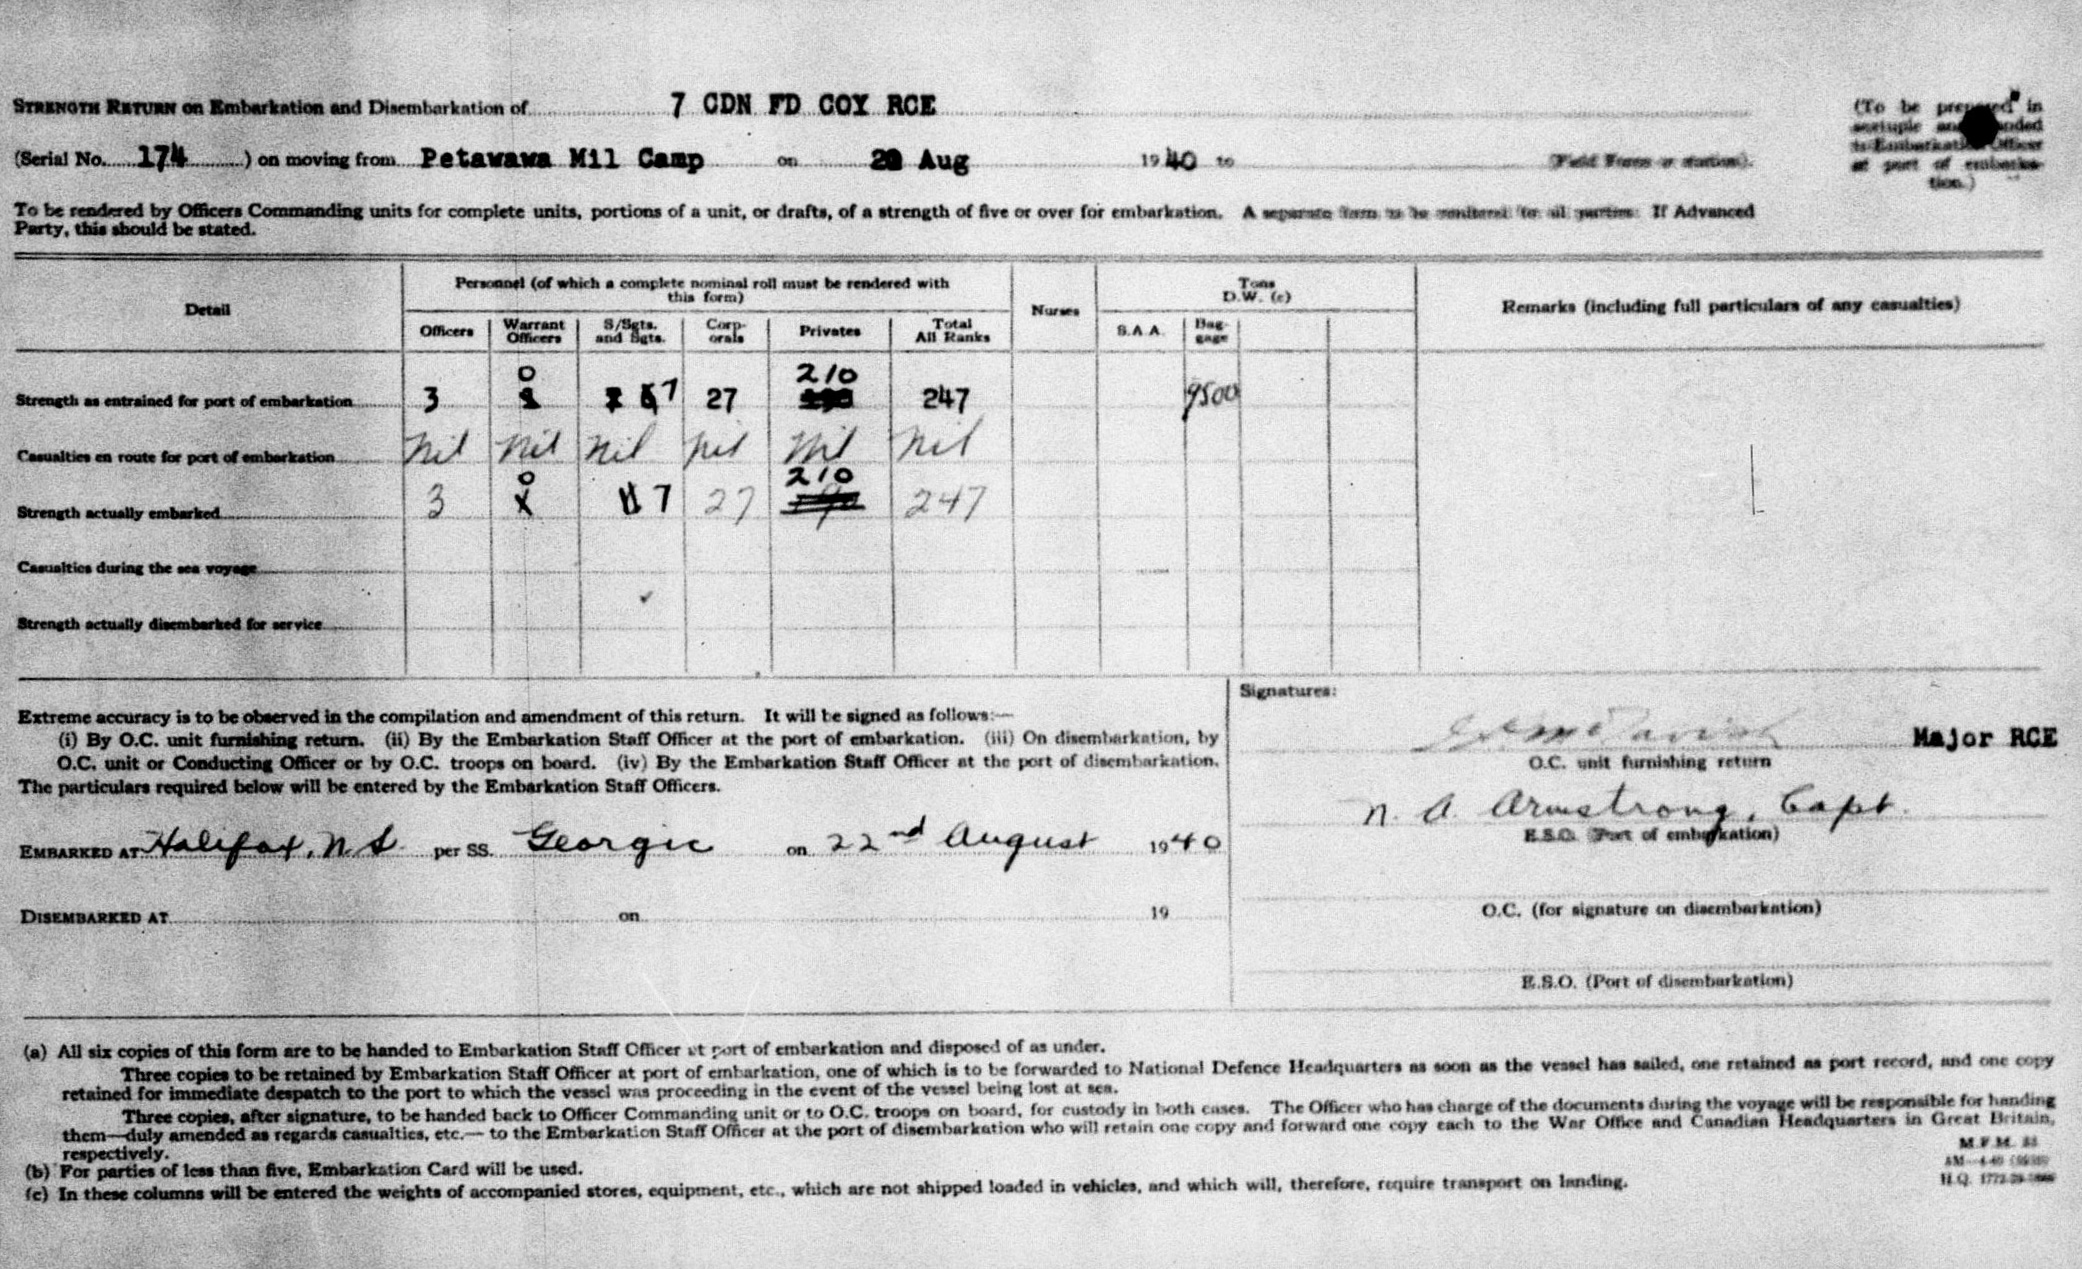 STRENGTH RETURN on Embarkation and Disembarkation of 7 CDN FD COY RCE
(To be prepared in
sextuple and handed
to Embarkation Officer
at port of embarka-
tion.)
(Serial No. 174 ) on moving from Petawawa Mil Camp on Aug 1940 to (Field Force or station).
To be rendered by Officers Commanding units for complete units, portions of a unit, or drafts, of a strength of five or over for embarkation. A separate form to be rendered for all parties. If Advanced
Party, this should be stated.
Detail
Personnel (of which a complete nominal roll must be rendered with
this form)
Nurses
Tons
D.W. (c)
Remarks (including full particulars of any casualties)
Officers
Warrant
Officers
S/Sgts.
and Sgts.
Corp-
orals
Privates
Total
All Ranks
S.A.A.
Bag-
gage
Strength as entrained for port of embarkation 3 0 7 27 210 247 9500
Casualties en route for port of embarkation Nil Nil Nil Nil Nil Nil
Strength actually embarked 3 0 7 27 210 247
Casualties during the sea voyage
Strength actually disembarked for service
Extreme accuracy is to be observed in the compilation and amendment of this return. It will be signed as follows:—
(i) By O.C. unit furnishing return. (ii) By the Embarkation Staff Officer at the port of embarkation. (iii) On disembarkation, by
O.C. unit or Conducting Officer or by O.C. troops on board. (iv) By the Embarkation Staff Officer at the port of disembarkation.
The particulars required below will be entered by the Embarkation Staff Officers.
EMBARKED AT Halifax, N S per SS. Georgic on 22nd August 1940
DISEMBARKED AT on 19
Signatures:
Major RCE
O.C. unit furnishing return
N. A. Armstrong, Capt.
E.S.O. (Port of embarkation)
O.C. (for signature on disembarkation)
E.S.O. (Port of disembarkation)
(a) All six copies of this form are to be handed to Embarkation Staff Officer at port of embarkation and disposed of as under.
Three copies to be retained by Embarkation Staff Officer at port of embarkation, one of which is to be forwarded to National Defence Headquarters as soon as the vessel has sailed, one retained as port record, and one copy
retained for immediate despatch to the port to which the vessel was proceeding in the event of the vessel being lost at sea.
Three copies, after signature, to be handed back to Officer Commanding unit or to O.C. troops on board, for custody in both cases. The Officer who has charge of the documents during the voyage will be responsible for handing
them—duly amended as regards casualties, etc.— to the Embarkation Staff Officer at the port of disembarkation who will retain one copy and forward one copy each to the War Office and Canadian Headquarters in Great Britain,
respectively.
(b) For parties of less than five, Embarkation Card will be used.
(c) In these columns will be entered the weights of accompanied stores, equipment, etc., which are not shipped loaded in vehicles, and which will, therefore, require transport on landing.
M.F.M.
H.Q.